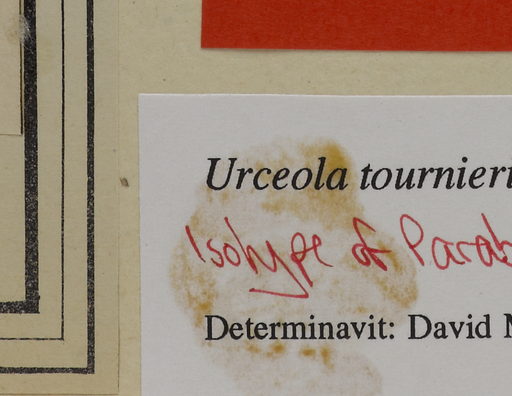 Urceola tournieri
Isotype of Parab
Determinavit: David